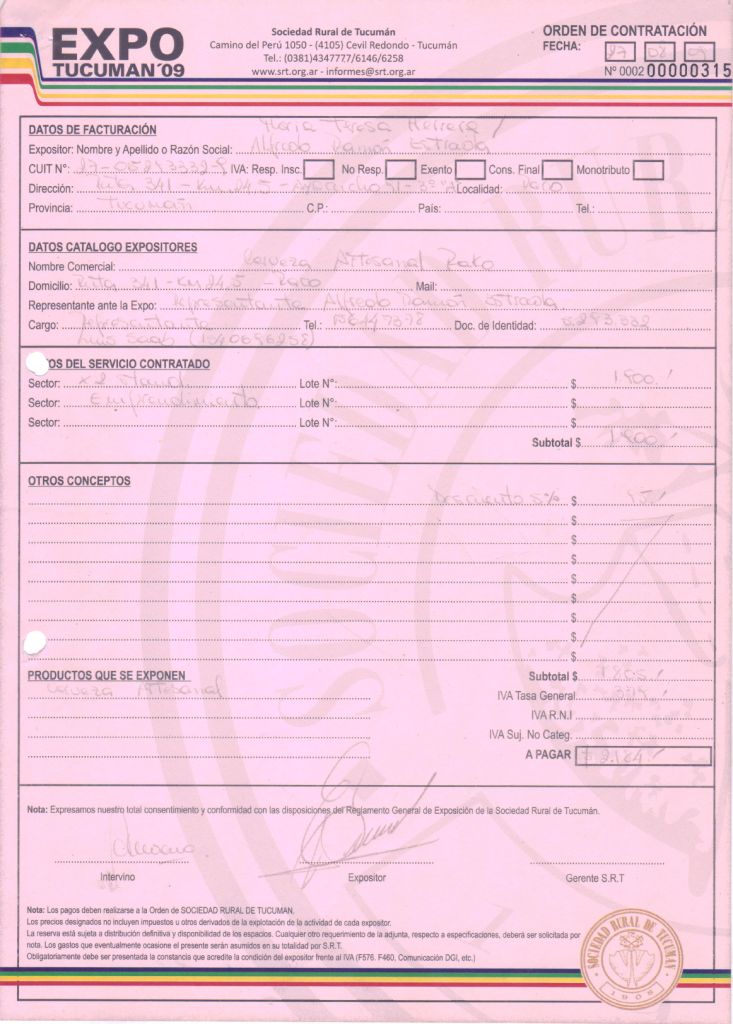 EXPO
TUCUMAN´09
Sociedad Rural de Tucumán
Camino del Perú 1050 - (4105) Cevil Redondo - Tucumán
Tel.: (0381)4347777/6146/6258
www.srt.org.ar - informes@srt.org.ar
ORDEN DE CONTRATACIÓN
FECHA: 27 08 09
Nº 0002 00000315
DATOS DE FACTURACIÓN
Maria Teresa Herrera /
Expositor: Nombre y Apellido o Razón Social: Alfredo Ramón Estrada
CUIT N°: IVA: Resp. Insc. No Resp. Exento Cons. Final Monotributo
Dirección: Ruta 341 - Km 24.5 - Localidad:
Provincia: Tucumán C.P.: País: Tel.:
DATOS CATALOGO EXPOSITORES
Nombre Comercial: Cerveza Artesanal
Domicilio: Ruta 341 - Km 24.5 - Mail:
Representante ante la Expo: representante Alfredo Ramón Estrada
Cargo: representante Tel.: Doc. de Identidad: 5.293.332
Luis
OS DEL SERVICIO CONTRATADO
Sector: x 2 stand Lote N°: $ 1.900.-
Sector: Emprendimiento Lote N°: $
Sector: Lote N°: $
Subtotal $ 1.900.-
OTROS CONCEPTOS
Descuento 5% $ 95.-
$
$
$
$
$
$
$
$
PRODUCTOS QUE SE EXPONEN
Cerveza Artesanal
Subtotal $ 1.805.-
IVA Tasa General 379.-
IVA R.N.I
IVA Suj. No Categ.
A PAGAR $ 2.184.-
Nota: Expresamos nuestro total consentimiento y conformidad con las disposiciones del Reglamento General de Exposición de la Sociedad Rural de Tucumán.
Intervino Expositor Gerente S.R.T
Nota: Los pagos deben realizarse a la Orden de SOCIEDAD RURAL DE TUCUMAN.
Los precios designados no incluyen impuestos u otros derivados de la explotación de la actividad de cada expositor.
La reserva está sujeta a distribución definitiva y disponibilidad de los espacios. Cualquier otro requerimiento de la adjunta, respecto a especificaciones, deberá ser solicitada por
nota. Los gastos que eventualmente ocasione el presente serán asumidos en su totalidad por S.R.T.
Obligatoriamente debe ser presentada la constancia que acredite la condición del expositor frente al IVA (F576. F460, Comunicación DGI, etc.)
SOCIEDAD RURAL DE TUCUMAN
1908